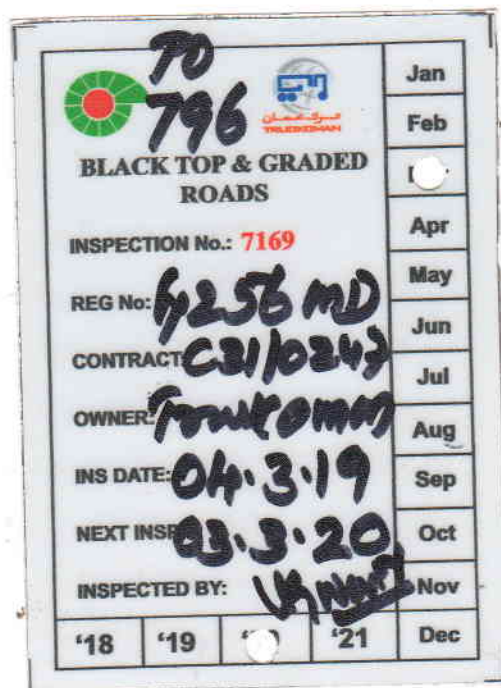 TO
796
تركـعـمـان
TRUCKOMAN
BLACK TOP & GRADED
ROADS
INSPECTION No.: 7169
REG No: 4256 MD
CONTRACT: C31/0247
OWNER: Truckoman
INS DATE: 04.3.19
NEXT INSP 03.3.20
INSPECTED BY:
Jan
Feb
Apr
May
Jun
Jul
Aug
Sep
Oct
Nov
Dec
‘18 ‘19 ‘21